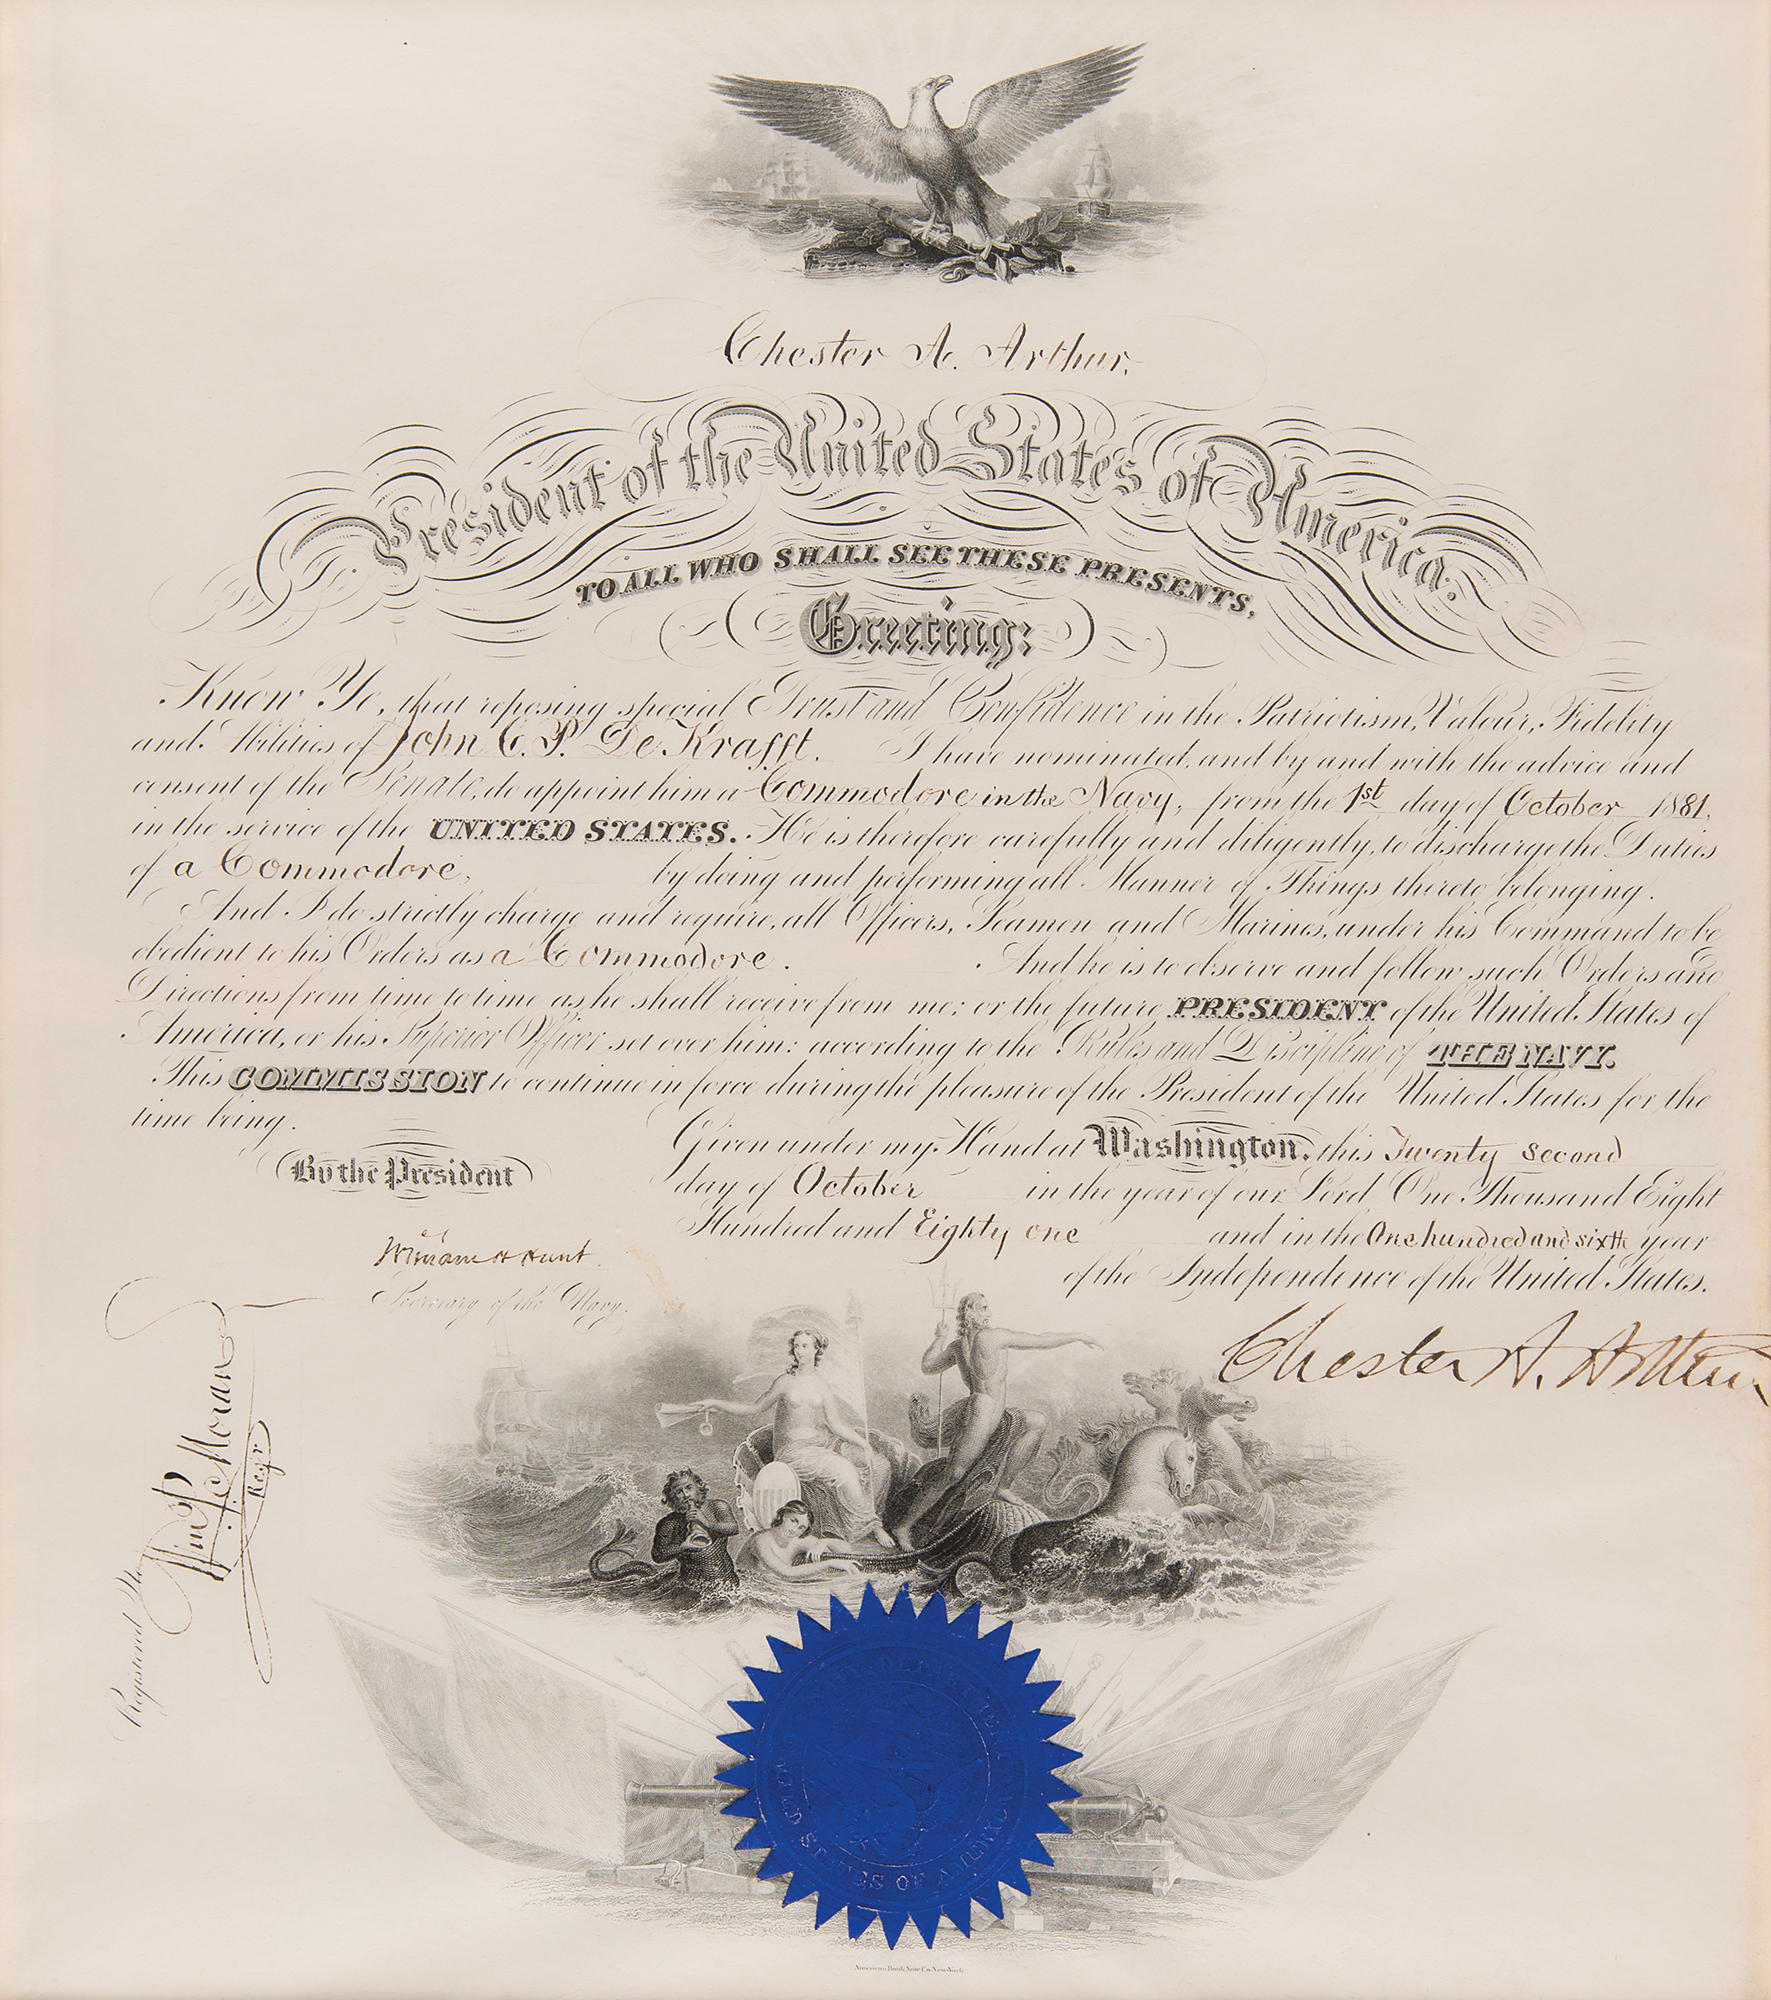 Chester A. Arthur,
President of the United States of America.
TO ALL WHO SHALL SEE THESE PRESENTS,
Greeting:
Know Ye, that reposing special Trust and Confidence in the Patriotism, Valour, Fidelity
and Abilities of John C. P. De Krafft. I have nominated, and by and with the advice and
consent of the Senate, do appoint him a Commodore in the Navy, from the 1st day of October 1881,
in the service of the UNITED STATES. He is therefore carefully and diligently, to discharge the Duties
of a Commodore, by doing and performing all Manner of Things thereto belonging.
And I do strictly charge and require, all Officers, Seamen and Marines, under his Command to be
obedient to his Orders as a Commodore. And he is to observe and follow such Orders and
Directions from time to time as he shall receive from me; or the future PRESIDENT of the United States of
America, or his Superior Officer set over him: according to the Rules and Discipline of THE NAVY.
This COMMISSION to continue in force during the pleasure of the President of the United States for the
time being.
Given under my Hand at Washington, this Twenty Second
day of October in the year of our Lord One Thousand Eight
Hundred and Eighty one and in the One hundred and sixth year
of the Independence of the United States.
By the President
William H Hunt
Secretary of the Navy.
Chester A. Arthur
Registered No
Wm P. Moran
Regr
NAVY DEPARTMENT
UNITED STATES OF AMERICA
American Bank Note Co. New York